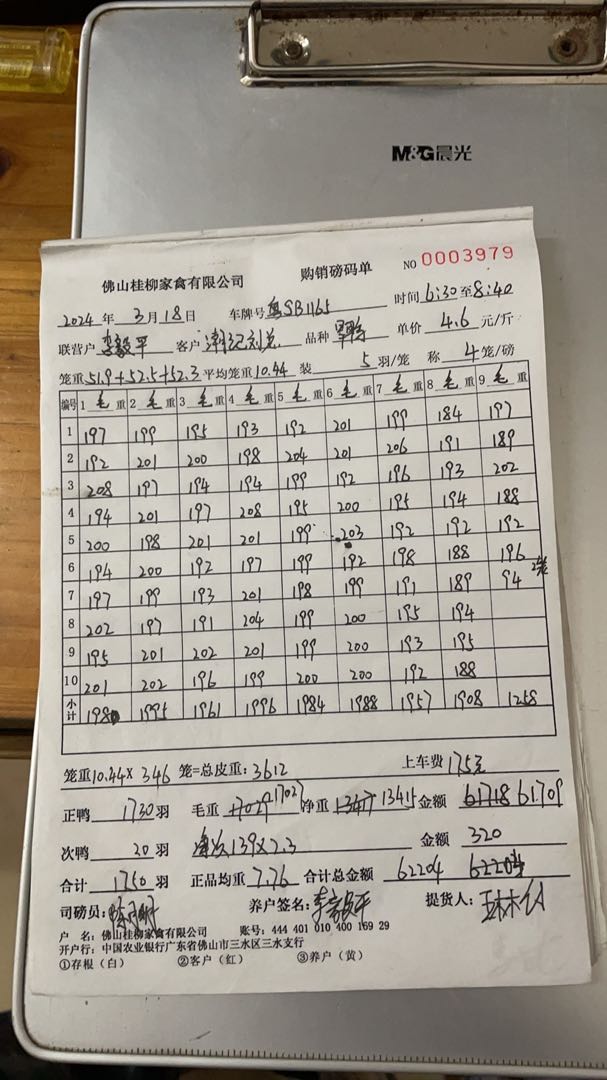 M&G晨光
佛山桂柳家禽有限公司 购销磅码单 NO 0003979
2024 年 3 月 18 日 车牌号 粤SB1165 时间 6:30 至 8:40
联营户 李毅平 客户 品种 单价 4.6 元/斤
笼重 51.9+52.5+52.3 平均笼重 10.44 装 5 羽/笼 称 4 笼/磅
编号 1 毛 重 2 毛 重 3 毛 重 4 毛 重 5 毛 重 6 毛 重 7 毛 重 8 毛 重 9 毛 重
1 197 199 195 193 192 201 199 184 197
2 192 201 200 198 204 201 206 191 189
3 208 197 194 194 199 192 196 193 202
4 194 201 197 208 195 200 195 194 188
5 200 198 201 201 199 203 192 192 192
6 194 200 192 197 199 192 198 188 196
7 197 199 193 201 198 199 191 189 94 2笼
8 202 197 191 204 199 200 195 194
9 195 201 202 201 199 200 193 195
10 201 202 196 199 200 200 192 188
小计 1980 1995 1961 1996 1984 1988 1957 1908 1258
笼重 10.44 × 346 笼=总皮重: 3612 上车费 175元
正鸭 1730 羽 毛重 17029 17027 净重 13417 13415 金额 61718 61.709
次鸭 20 羽 139×2.3 金额 320
合计 1750 羽 正品均重 7.76 合计总金额 62204 62204
司磅员: 养户签名: 李毅平 提货人:
户 名: 佛山桂柳家禽有限公司 账号: 444 401 010 400 169 29
开户行: 中国农业银行广东省佛山市三水区三水支行
①存根（白） ②客户（红） ③养户（黄）